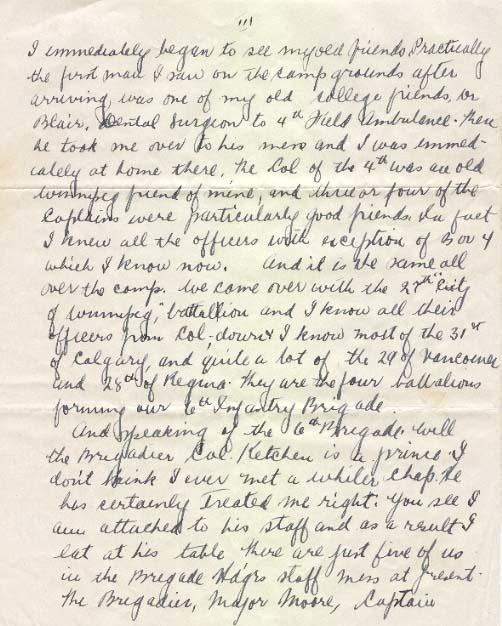 III
I immediately began to see my old friends. Practically
the first man I saw on the camp grounds after
arriving, was one of my old college friends, Dr
Blair, Dental Surgeon to 4th Field Ambulance. Then
he took me over to his mess and I was immed-
iately at home there, the Col of the 4th was an old
Winnipeg friend of mine, and three or four of the
Captains were particularly good friends. In fact
I knew all the officers with exception of 3 or 4
which I know now. And it is the same all
over the camp. We came over with the 27th "City
of Winnipeg," battallion and I know all their
officers from Col. down & I know most of the 31st
of Calgary, and quite a lot of the 29 of Vancouver
and 28th of Regina. They are the four battalions
forming our 6th Infantry Brigade.
And speaking of the 6th Brigade. Well
the Brigadier Col. Ketchen is a prince. I
don't think I ever met a whiter chap. He
has certainly treated me right. You see I
am attached to his staff and as a result I
eat at his table there are just five of us
in the Brigade Hd'qrs staff mess at present.
The Brigadier, Major Moore, Captain